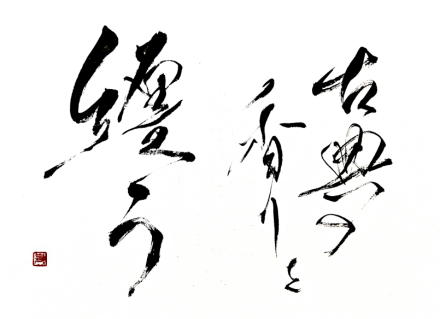 古典の
香りを
纏う